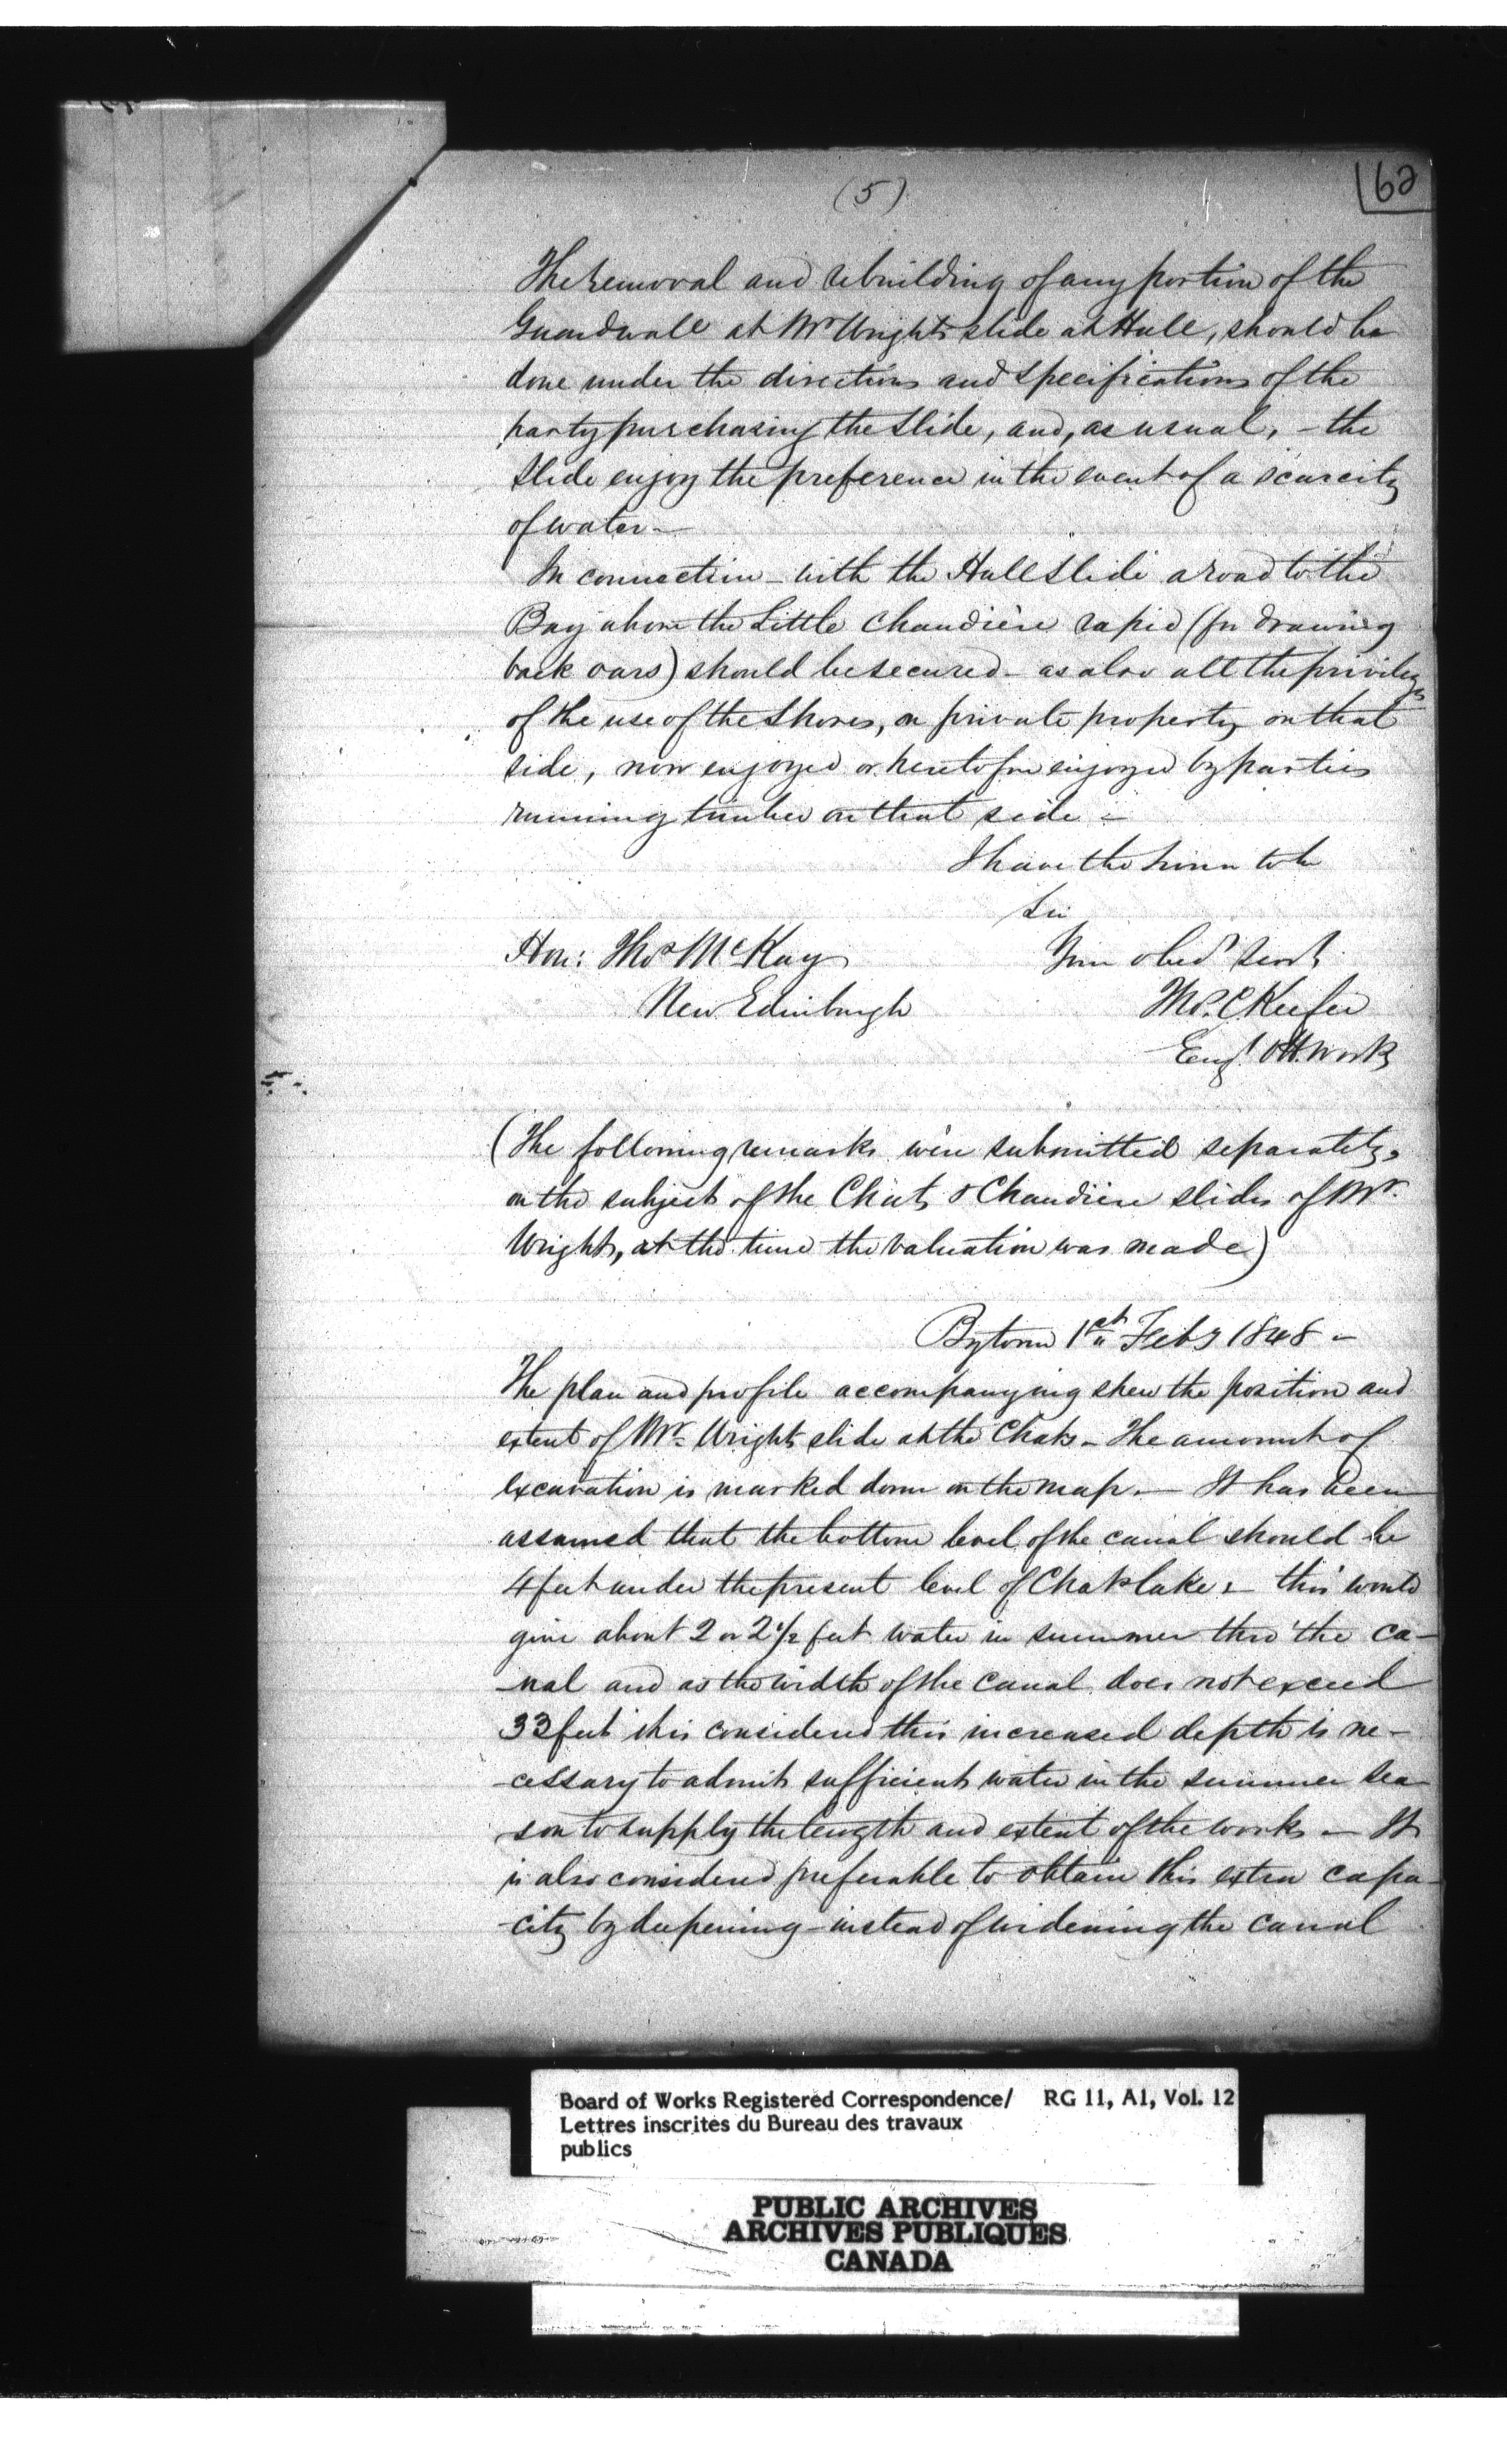 (5)
62
The removal and rebuilding of any portion of the
Guardwall at Mr Wrights slide at Hull, should be
done under the directions and specifications of the
party purchasing the slide, and, as usual, - the
slide enjoy the preference in the event of a scarcity
of water -
In connection - with the Hull slide a road to the
Bay above the Little Chaudière rapid (for drawing
back oars) should be secured - as also all the privileges
of the use of the shores, on private property on that
side, now enjoyed or heretofore enjoyed by parties
running timber on that side -
I have the honor to be
Sir
Hon: Thos McKay
Your obedt servt
New Edinburgh
Thos. C Keefer
Engr. Ott. Works
(The following remarks were submitted separately,
on the subject of the Chats & Chaudiere slides of Mr.
Wright, at the time the valuation was made)
Bytown 1st Feby 1848 -
The plan and profile accompanying shew the position and
extent of Mr. Wrights slide at the Chats - The amount of
excavation is marked down on the map. - It has been
assumed that the bottom level of the canal should be
4 feet under the present level of Chats lake: - this would
give about 2 or 2 1/2 feet water in summer thro' the ca-
-nal and as the width of the canal does not exceed
33 feet it is considered this increased depth is ne-
-cessary to admit sufficient water in the summer sea
son to supply the length and extent of the works - It
is also considered preferable to obtain this extra capa-
-city by deepening - instead of widening the canal
Board of Works Registered Correspondence/ RG 11, A1, Vol. 12
Lettres inscrites du Bureau des travaux
publics
PUBLIC ARCHIVES
ARCHIVES PUBLIQUES
CANADA